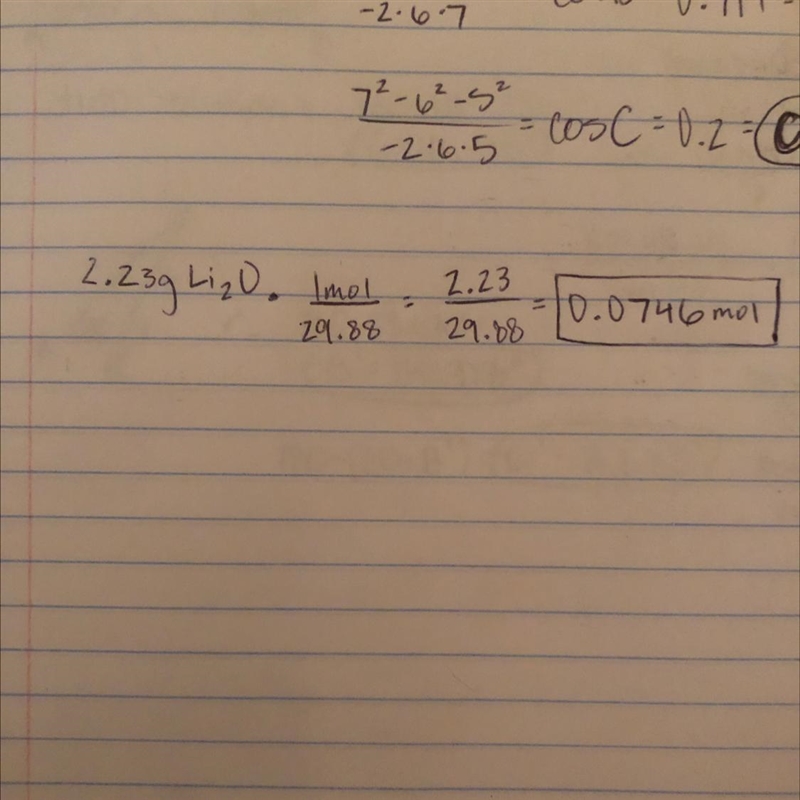 -2·6·7
7²-6²-5² / -2·6·5 = cosC = 0.2 = C
2.23g Li₂O · 1mol / 29.88 = 2.23 / 29.88 = 0.0746 mol